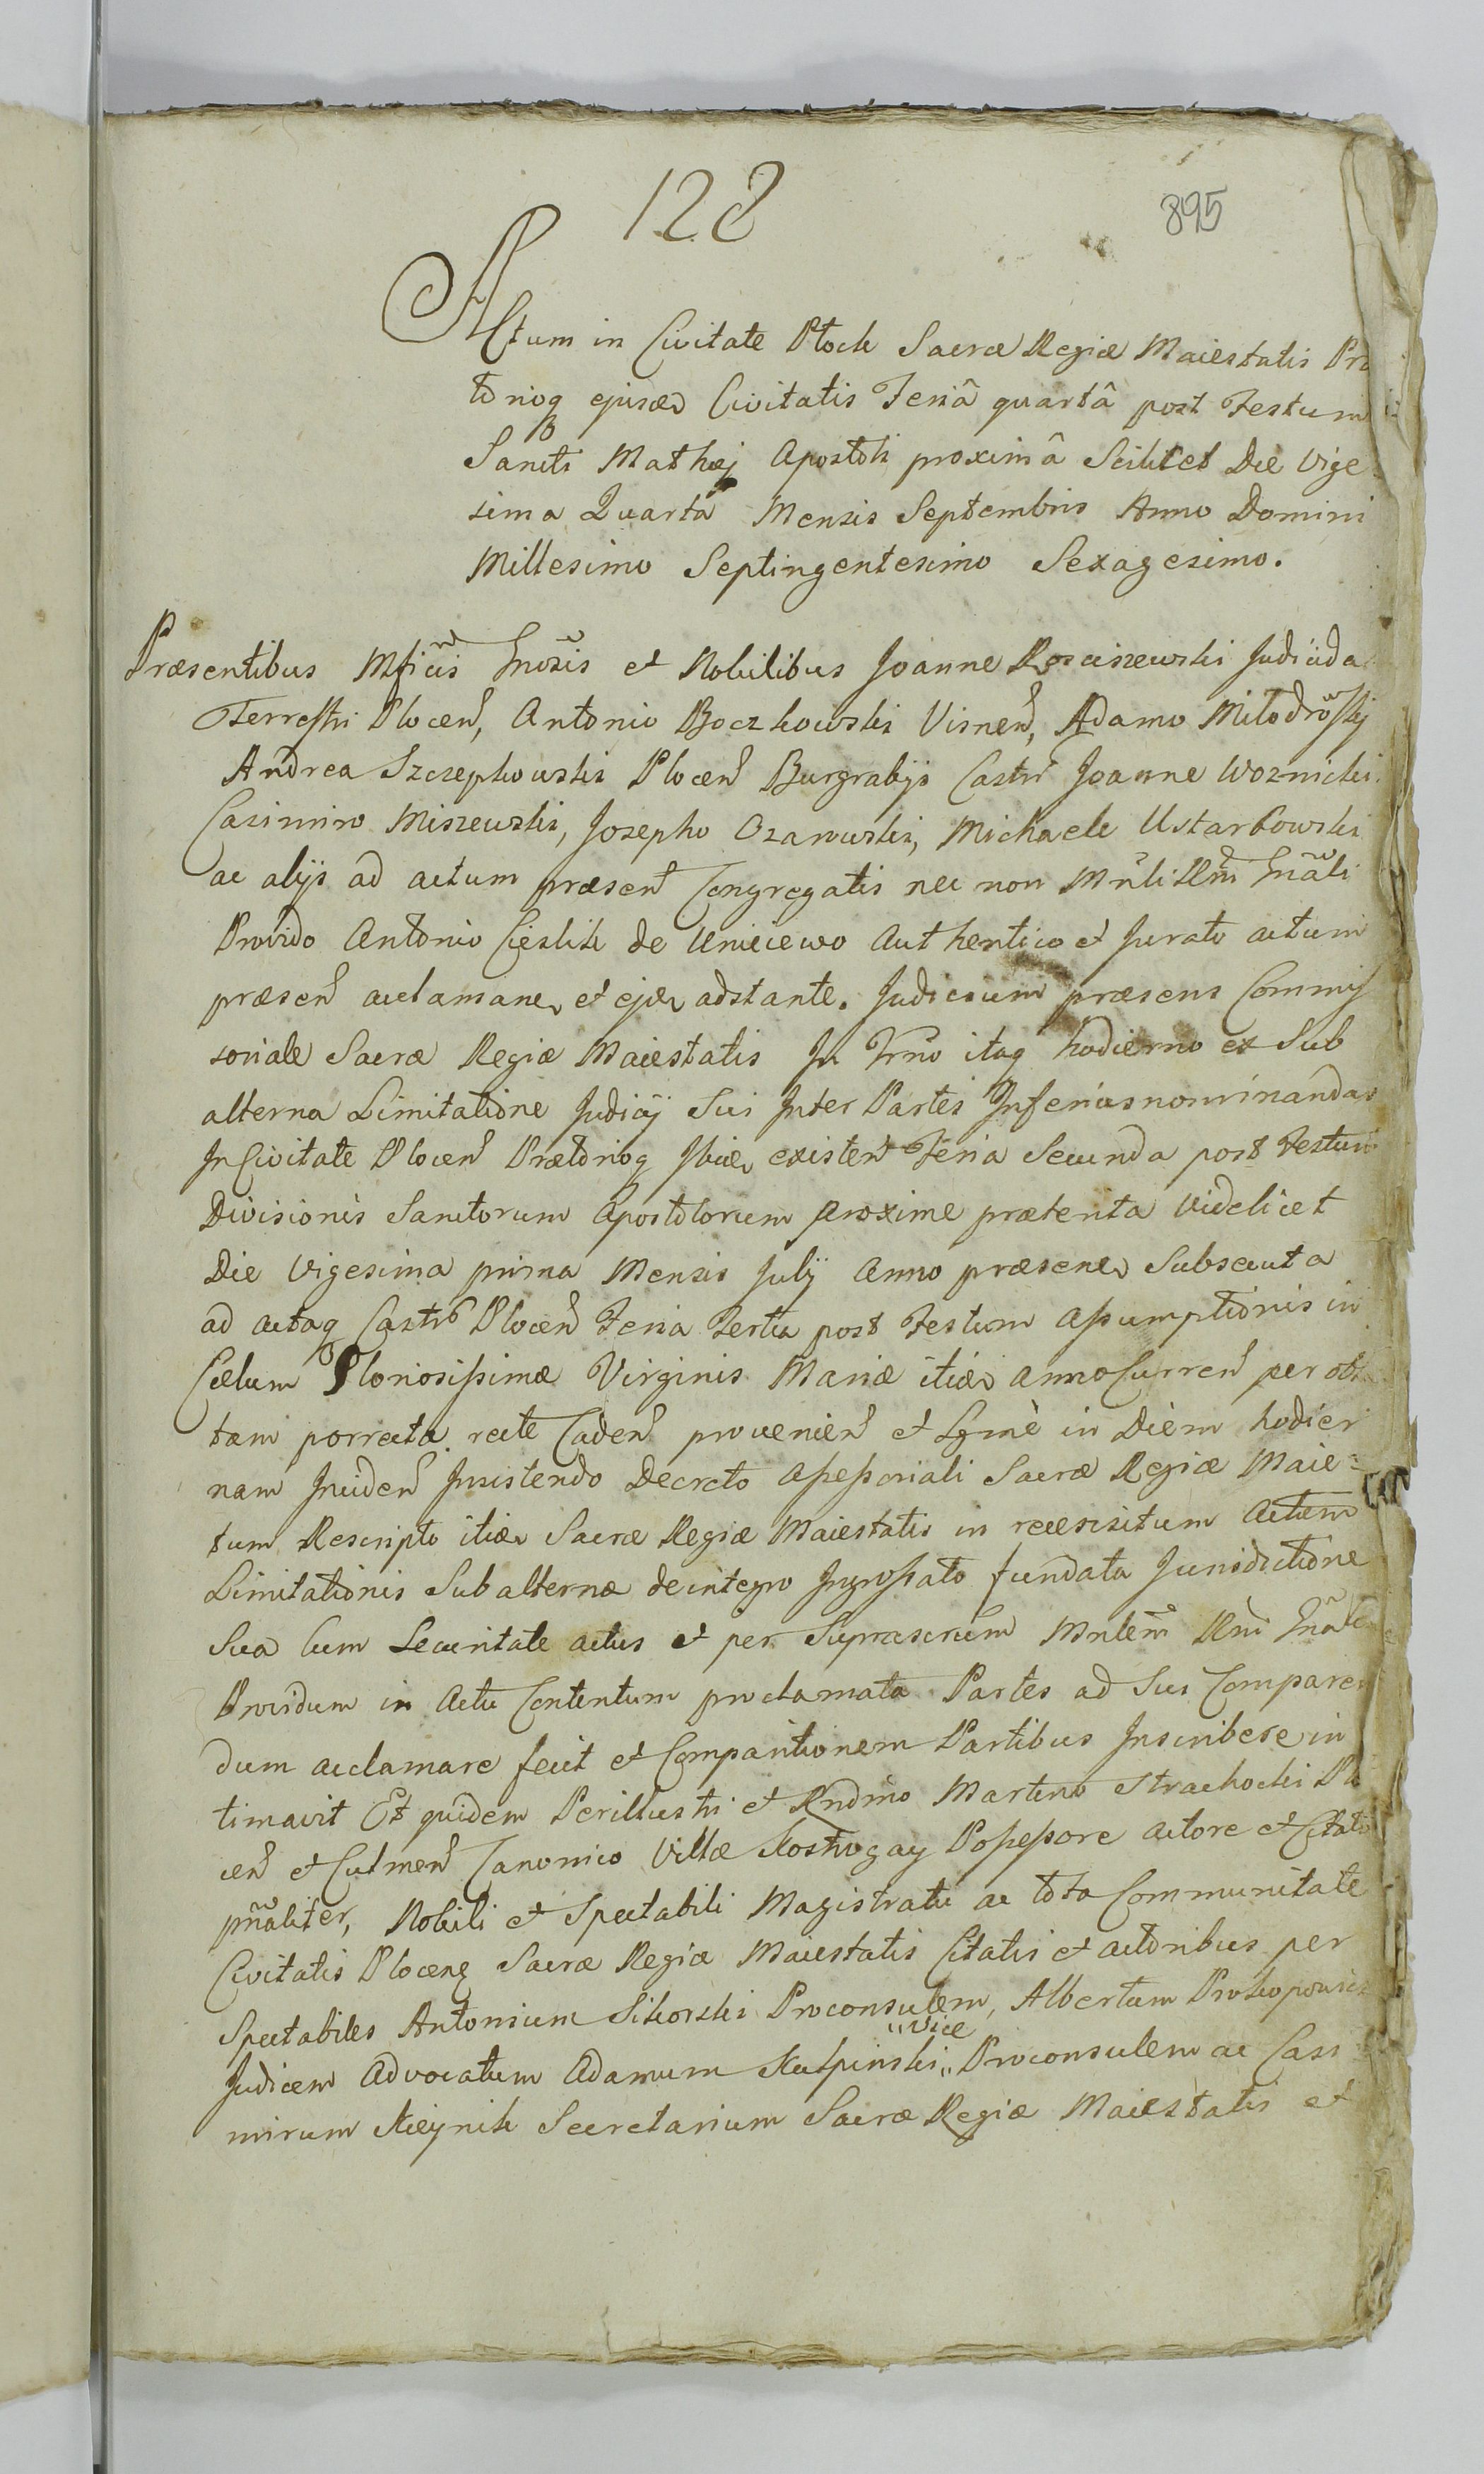 128
895
Actum in Civitate Płock Sacræ Regiæ Maiestatis Præ
torioq ejusd Civitatis Feriâ quartâ post Festum
Sancti Mathæj Apostoli proximâ Scilicet Die Vige
sima Quarta Mensis Septembris Anno Domini
Millesimo Septingentesimo Sexagesimo.
Præsentibus Mficis Gnosis et Nobilibus Joanne Rosciszewski Judicida
Terrestri Plocen, Antonio Boczkowski Visnen, Adamo Miłodrowskj
Andrea Szczepkowski Plocen Burgrabijs Castri Joanne Woznicki
Casimiro Miszewski, Josepho Ozarowski, Michaele Ustarbowski
ac alijs ad actum præsen Congregatis nec non Mrli Rni Gnali
Provido Antonio Cieslik de Unieciewo Authentico et Jurato actum
præsen acclamane et ejd adstante. Judicium præsens Commis
soriale Sacræ Regiæ Maiestatis In Trno itaq hodierno ex Sub
alterna Limitatione Judicij Sui Inter Partes Inferius nominandas
In Civitate Plocen Prætorioq Ibid existen Feria Secunda post Festum
Divisionis Sanctorum Apostolorum proxime præterita videlicet
Die Vigesima prima Mensis Julij Anno præsene Subsecuta
ad actaq Castr Plocen Feria Tertia post Festum Assumptionis in
Cælum Gloriosissimæ Virginis Mariæ itid anno Curren per obla
tam porrecta recte Caden provenien et Lgme in Diem hodier
nam Inciden Insistendo Decreto Assessoriali Sacræ Regiæ Maie=
tum Rescripto itid Sacræ Regiæ Maiestatis in recessitum Actum
Limitationis Subalternæ de integro Ingrossato fundata Jurisdictione
Sua Cum Securitate actus et per Suprascrium Mrlem Rni Gnalem
Providum in Actu Contentum proclamata Partes ad Sui Comparen
dum acclamare fecit et Comparitionem Partibus Inscribere in
timavit Et quidem Perillustri et Rndmo Martino Strachocki Plo
cen et Culmen Canonico Villæ Kostrogay Possessore actore et Citato
pnaliter, Nobili et Spectabili Magistratu ac tota Communitate
Civitatis Plocens Sacræ Regiæ Maiestatis Citatis et actoribus per
Spectabiles Antonium Sikorski Proconsulem, Albertum Prokopowicz
Judicem Advocatum Adamum Kulpinski „vice„ Proconsulem ac Casi
mirum Kleynik Secretarium Sacræ Regiæ Maiestatis et